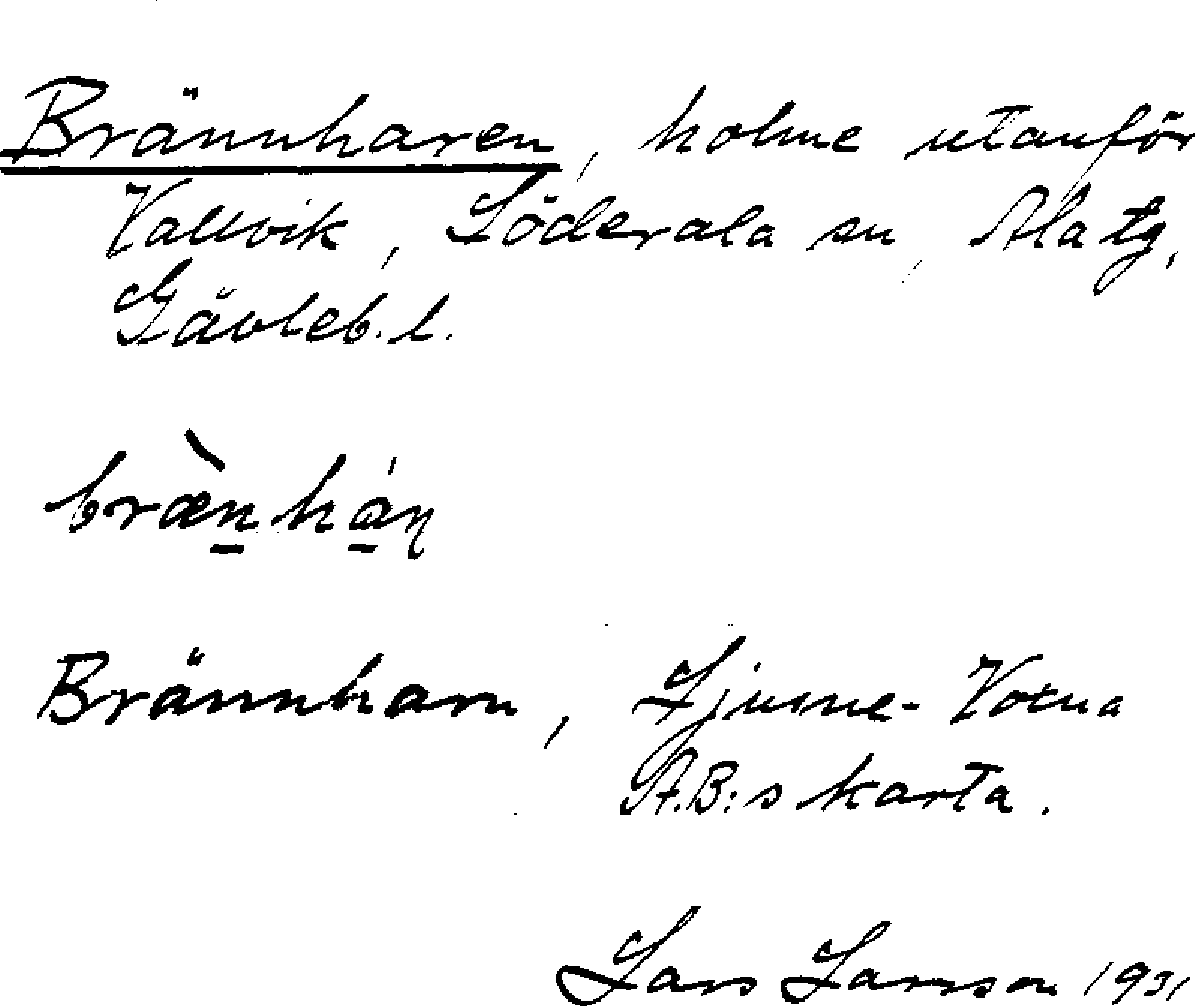 Brännharen, holme utanför
Vallvik, Söderala sn, Ala tg,
Gävleb. l.
bræ̀n̲há̲ŋ
Brännharn, Ljusne-Voxna
A.B:s karta.
Lars Larsson 1931